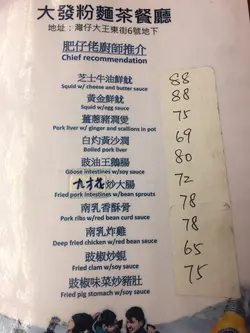 大發粉麵茶餐廳
地址：灣仔大王東街6號地下
肥仔佬廚師推介
Chief recommendation
芝士牛油鮮魷 88
Squid w/cheese and butter sauce
黃金鮮魷 88
Squid w/egg sauce
薑蔥豬潤煲 75
Pork liver w/ ginger and scallions in pot
白灼黃沙潤 69
Boiled pork liver
豉油王鵝腸 80
Goose intestines w/soy sauce
炒大腸 72
Fried pork intestines w/bean sprouts
南乳香酥骨 78
Pork ribs w/red bean curd sauce
南乳炸雞 78
Deep fried chicken w/red bean sauce
豉椒炒蜆 65
Fried clam w/soy sauce
豉椒味菜炒豬肚 75
Fried pig stomach w/soy sauce